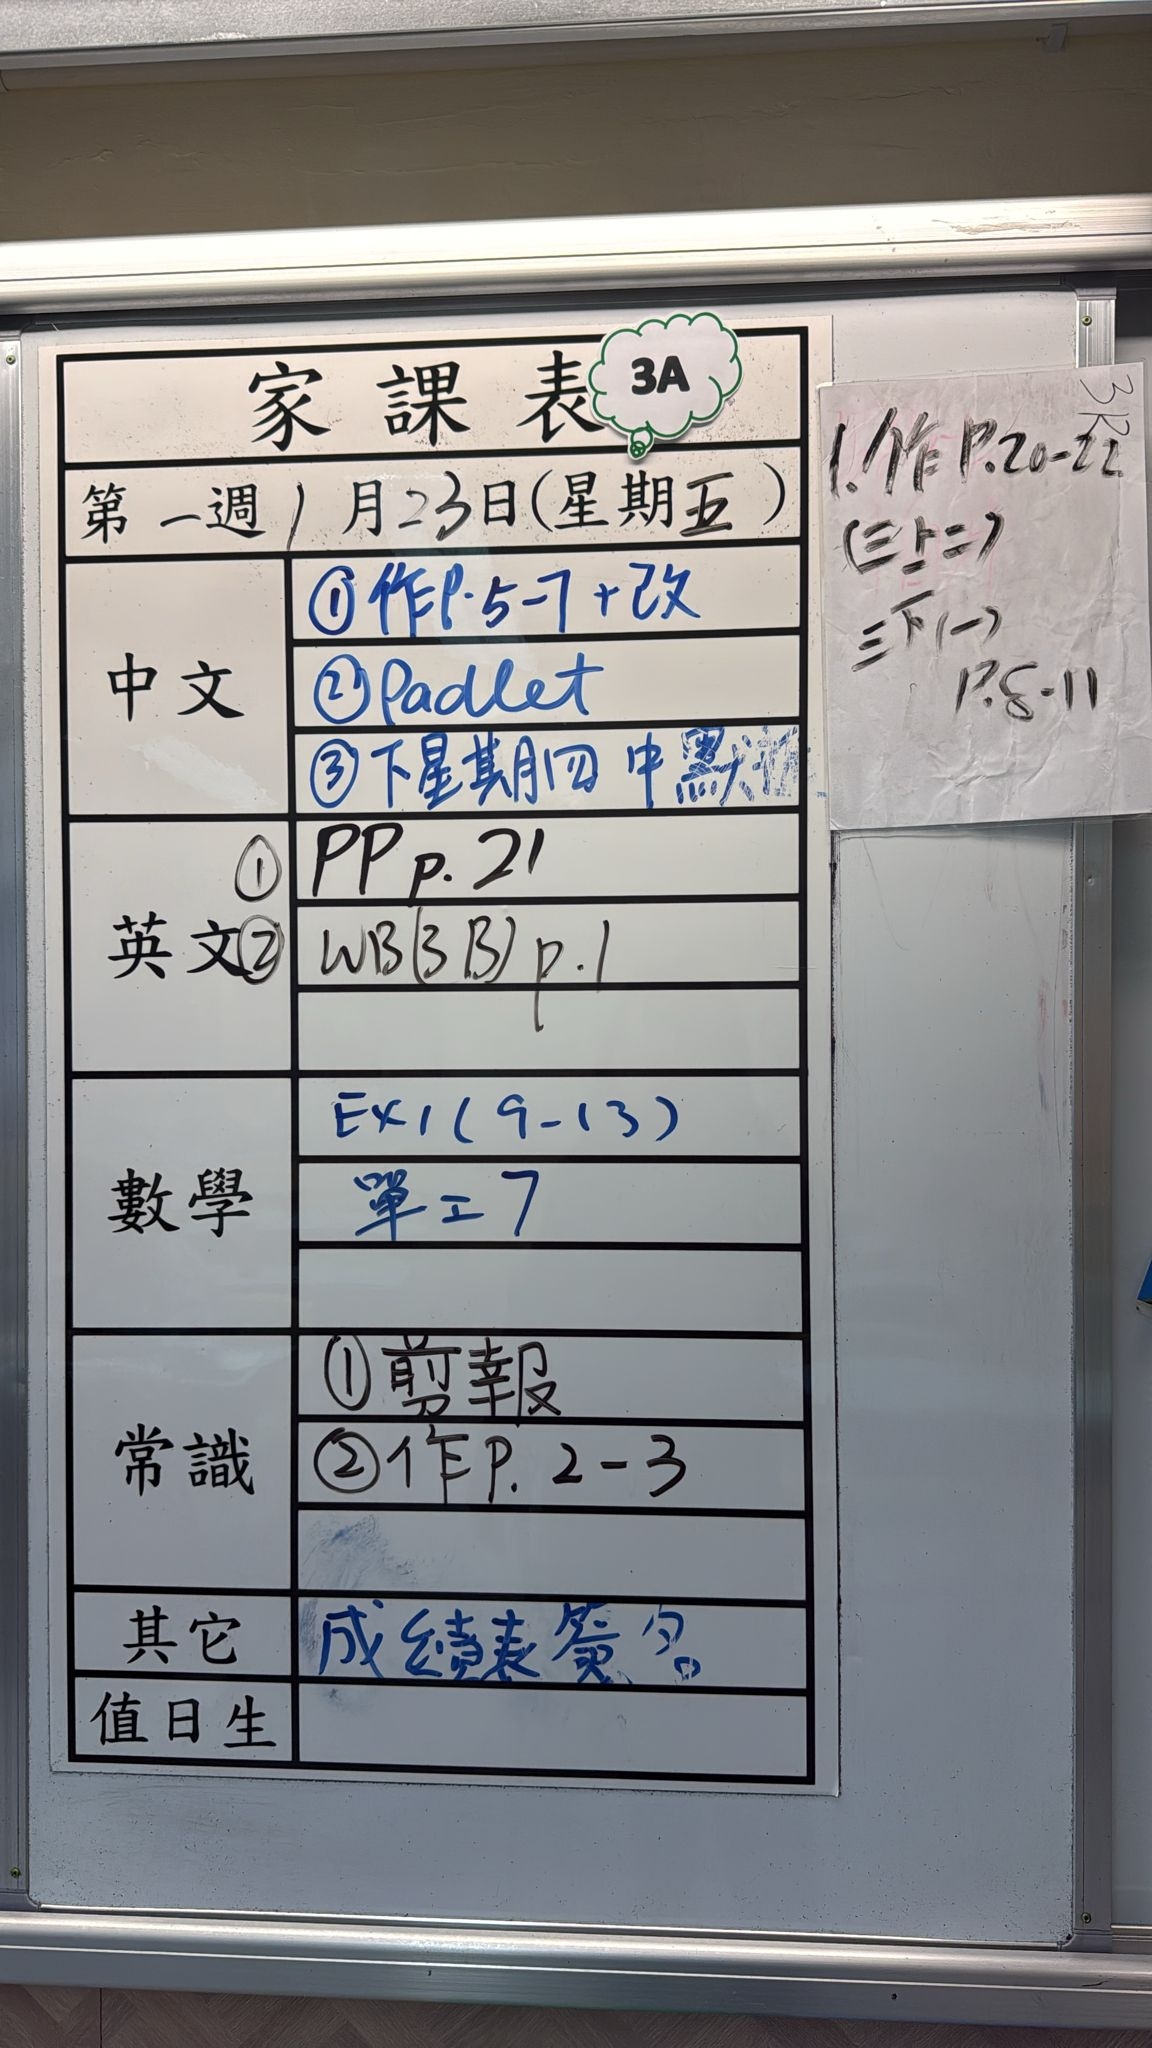 家課表 3A
第一週 1月23日(星期五)
中文
①作P.5-7+改
②Padlet
③下星期四 中默
英文
① PP p.21
② WB(3B) p.1
數學
EX1(9-13)
單工7
常識
①剪報
②作P.2-3
其它
成績表簽名。
值日生
1.作P.20-22
(三上二)
三下(一)
P.8-11